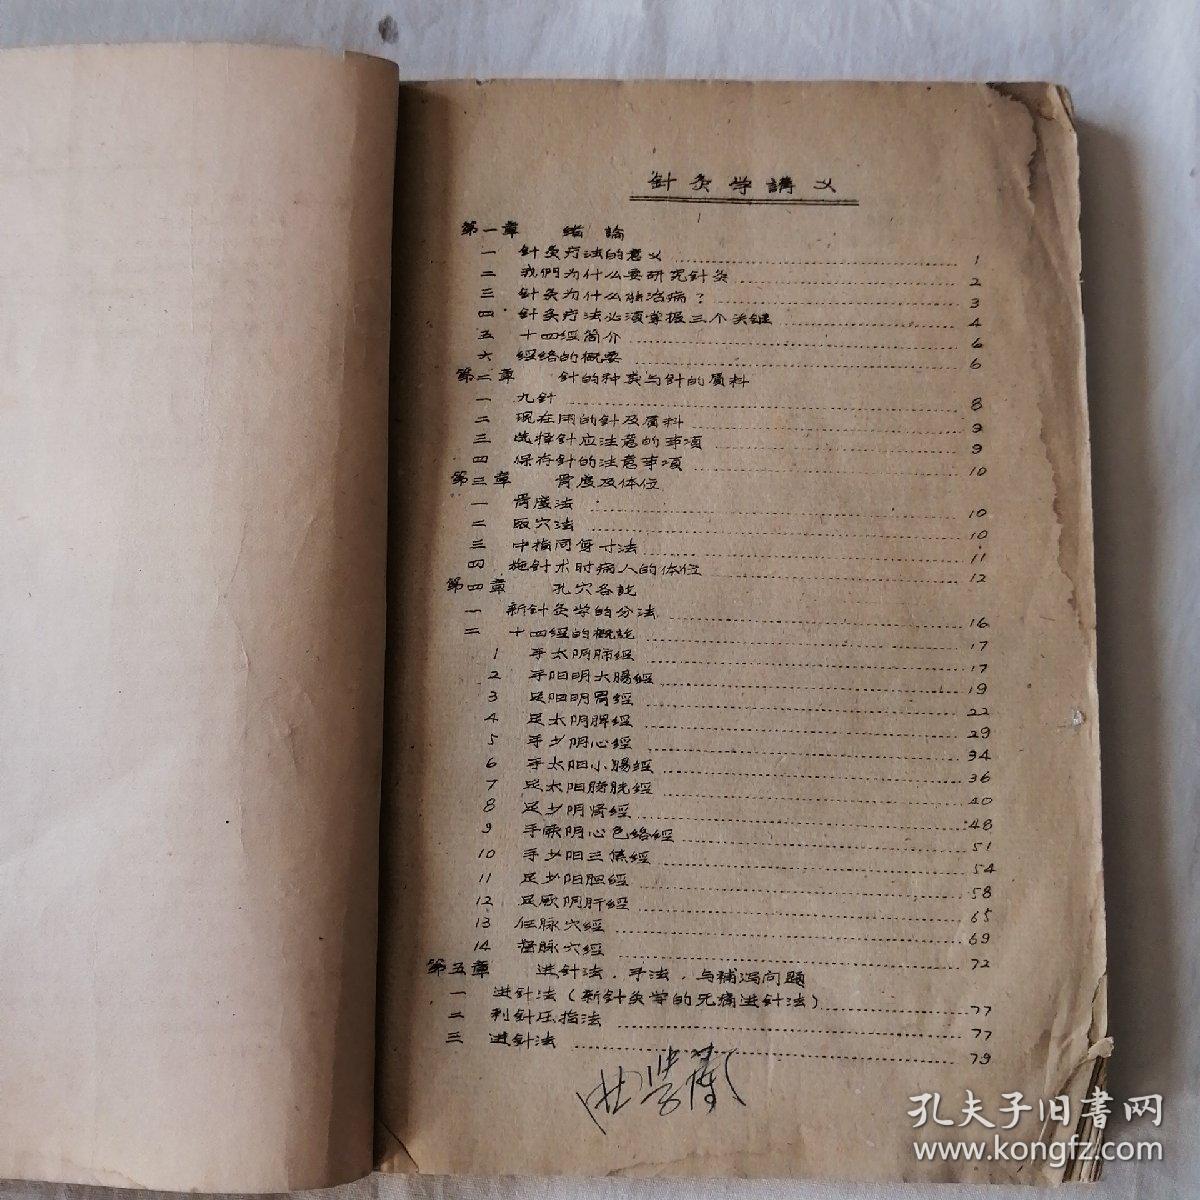 針灸学講义
第一章 绪論
一 針灸疗法的意义 1
二 我們为什么要研究針灸 2
三 針灸为什么能治病? 3
四 針灸疗法必须掌握三个关键 4
五 十四經简介 6
六 經络的概要 6
第二章 针的种类与针的质料
一 九针 8
二 现在用的針及质料 9
三 选择针应注意的事項 9
四 保存针的注意事項 10
第三章 骨度及体位
一 骨度法 10
二 取穴法 10
三 中指同身寸法 11
四 施针术时病人的体位 12
第四章 孔穴各說
一 新針灸学的分法 16
二 十四經的概說 17
1 手太阴肺經 17
2 手阳明大腸經 19
3 足阳明胃經 22
4 足太阴脾經 29
5 手少阴心經 34
6 手太阳小腸經 36
7 足太阳膀胱經 40
8 足少阴肾經 48
9 手厥阴心包络經 51
10 手少阳三焦經 54
11 足少阳胆經 58
12 足厥阴肝經 65
13 任脉穴經 69
14 督脉穴經 72
第五章 进针法.手法.与補泻问题
一 进针法(新針灸学的无痛进針法) 77
二 刺針压指法 77
三 进針法 79
孔夫子旧書网
www.kongfz.com